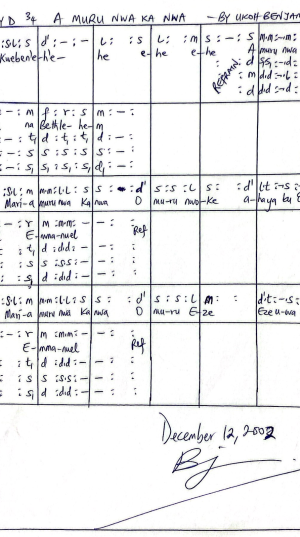 Y D 3/4 A MURU NWA KA NNA -BY UKOH BENJAM
:SL:S d' :- :- L: :S L: :m S :- :S m.m:-.m:
Kuebenle-he- he e- he e-he A muru nwa
REFRAIN:
:- :m f :r :s m :- :
na Bethle-he-m
:- :t₁ d :t₁ :t₁ d :- :
:- :s s :s :s s :- :
:- :s₁ s₁ :s₁ :s₁ d₁ :- :
:S.L: m m.m:L.L: s s : :d' s :s :L s: :d' L.t :-.s
Mari-a muru nwa Ka nwa O mu-ru nwo-ke a-haya bu E
:- :r m :m.m: - - : : Ref
E-mma-nuel
: :t₁ d :d.d: - - : :
: :s s :s.s: - - : :
: :s₁ d :d.d: - - : :
:S.L: m m.m:L.L: s s : :d' s :s :L m: : d'.t:-.s:
Mari-a muru nwa Ka nwa O mu-ru E-ze Eze u-wa
:- :r m :m.m: - - : : Ref
E-mma-nuel
: :t₁ d :d.d: - - : :
: :s s :s.s: - - : :
: :s₁ d :d.d: - - : :
December 12, 2002